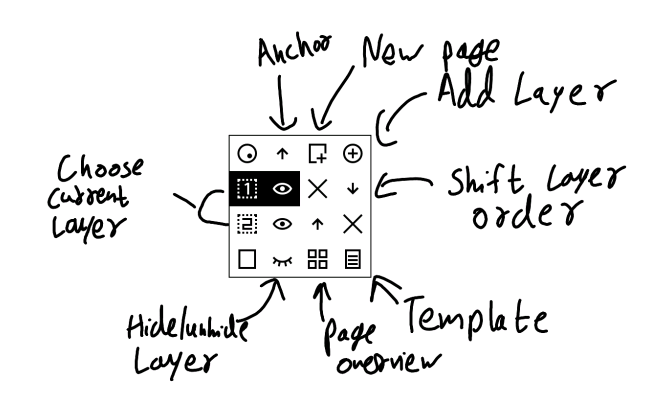 Anchor
New page
Add Layer
Choose
current
Layer
1
2
Shift Layer
order
Hide/unhide
Layer
page
overview
Template